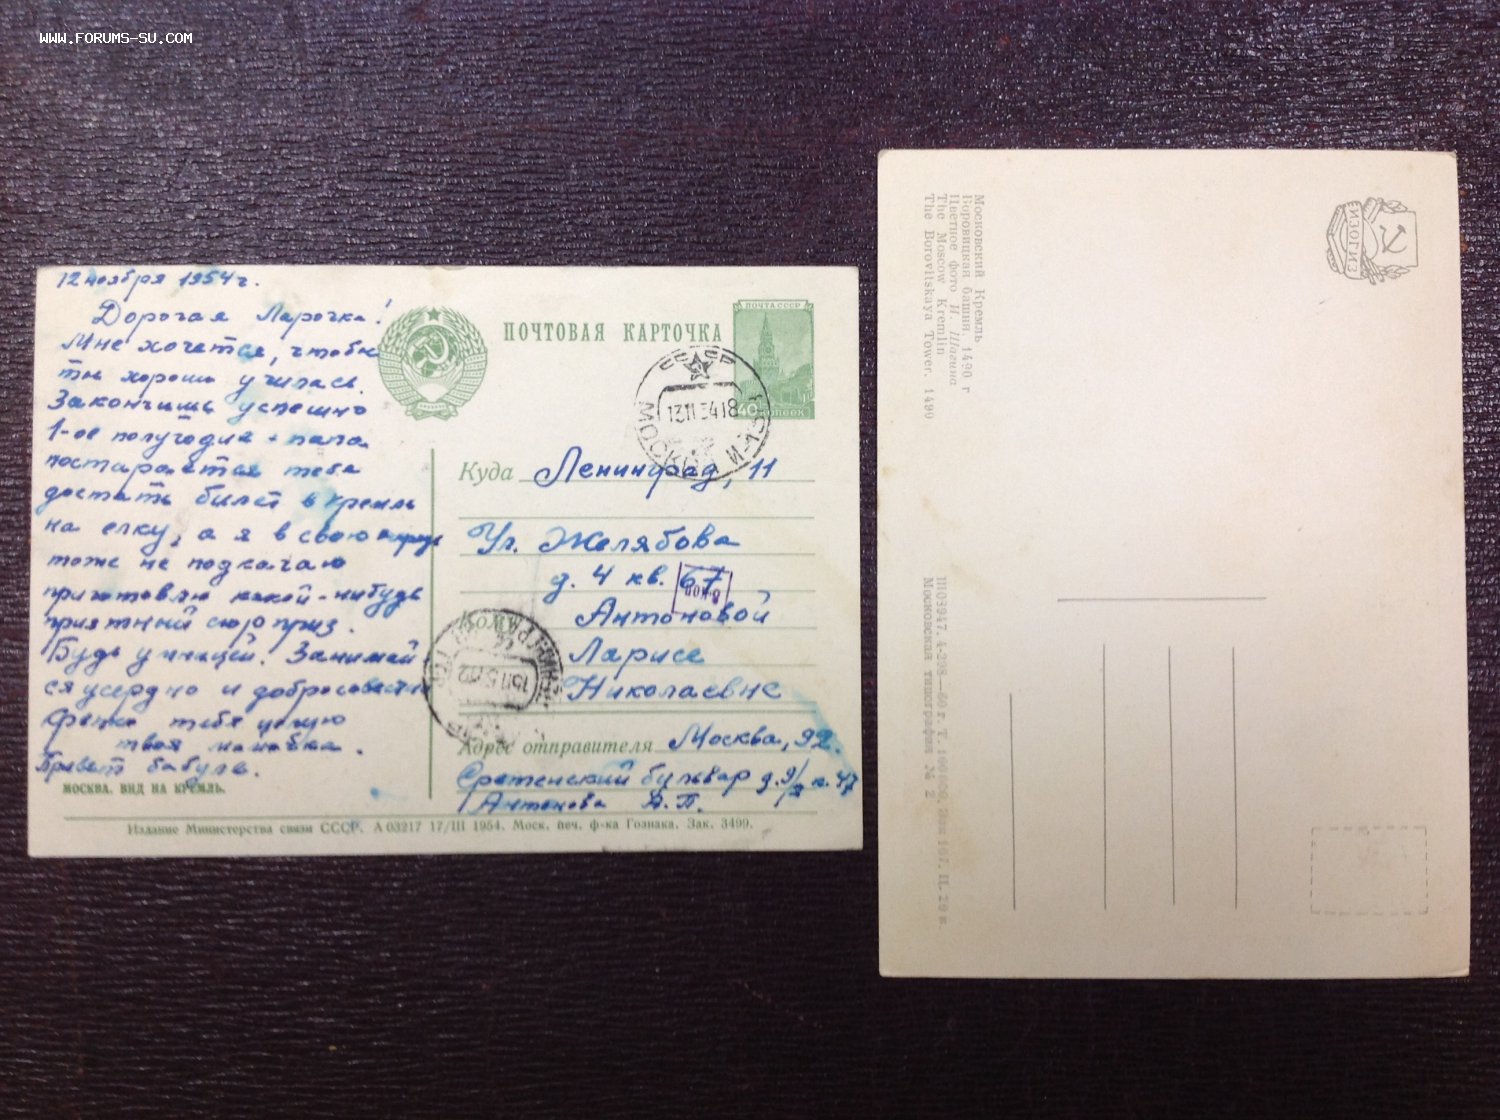 WWW.FORUMS-SU.COM
12 ноября 1954 г.
Дорогая Ларочка!
Мне хочется, чтобы
ты хорошо училась.
Закончишь успешно
1-ое полугодие - папа
постарается тебе
достать билет в кремль
на елку, а я в свою
тоже не подкачаю
приготовлю какой-нибудь
приятный сюрприз.
Будь умницей. Занимай
ся усердно и добросовестно
Крепко тебя целую
твоя мамочка.
Привет бабуле.
МОСКВА. ВИД НА КРЕМЛЬ.
ПОЧТОВАЯ КАРТОЧКА
ПОЧТА СССР
40 КОПЕЕК
СССР
МОСКВА
13 11 54 18
Куда Ленинград, 11
Ул. Желябова
д. 4 кв. 67
Кому Антоновой
Ларисе
Николаевне
Адрес отправителя Москва, 92.
Сретенский бульвар д. 9/2 к. 47
Антонова А.П.
Издание Министерства связи СССР. А 03217 17/III 1954. Моск. печ. ф-ка Гознака. Зак. 3499.
ИЗОГИЗ
Московский Кремль
Боровицкая башня. 1490 г
Цветное фото Н. Шагина
The Moscow Kremlin
The Borovitskaya Tower. 1490
Московская типография № 2